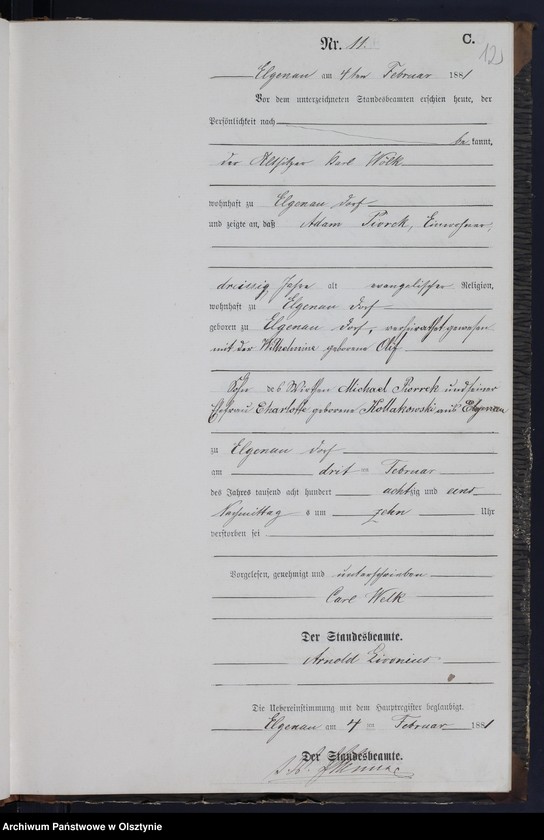 Nr. 11.
C.
12
Elgenau am 4ten Februar 1881
Vor dem unterzeichneten Standesbeamten erschien heute, der
Persönlichkeit nach
be kannt,
der Altsitzer Karl Wölk
wohnhaft zu Elgenau Dorf
und zeigte an, daß Adam Piorrek, Einwohner,
dreissig Jahre alt evangelischer Religion,
wohnhaft zu Elgenau Dorf
geboren zu Elgenau Dorf, verheirathet gewesen
mit der Wilhelmine geborene
Sohn des Wirthen Michael Piorrek und seiner
Ehefrau Charlotte geborene Kollakowski aus Elgenau
zu Elgenau Dorf
am drit ten Februar
des Jahres tausend acht hundert achtzig und eins
Nachmittag s um zehn Uhr
verstorben sei
Vorgelesen, genehmigt und unterschrieben
Carl Welk
Der Standesbeamte.
Arnold Livonius
Die Uebereinstimmung mit dem Hauptregister beglaubigt.
Elgenau am 4 ten Februar 1881
Der Standesbeamte.
Archiwum Państwowe w Olsztynie